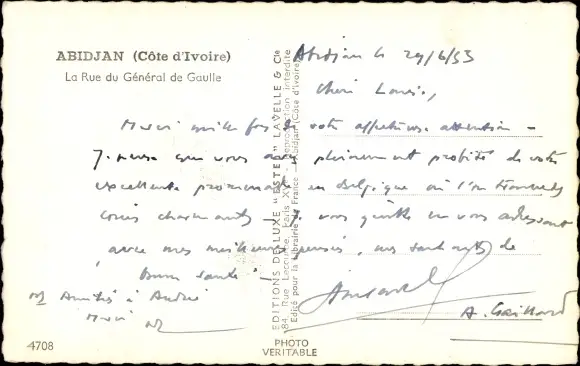 ABIDJAN (Côte d'Ivoire)
La Rue du Général de Gaulle
Abidjan le 29/6/53
Merci mille fois de votre affectueuse attention -
J. pense que vous avez pleinement profité de votre
excellente promenade en Belgique où l'on
coins charmants. J. vous quitte en vous adressant
avec mes meilleures pensées, mes souhaits de
bonne santé !
Amitiés à André
Merci
A. Gaillard
EDITIONS DE LUXE "ESTEL" LAVELLE & Cie
84, Rue Lecourbe, Paris XVe - Reproduction interdite
Edité pour la Librairie de France - Abidjan (Côte d'Ivoire)
4708
PHOTO
VERITABLE